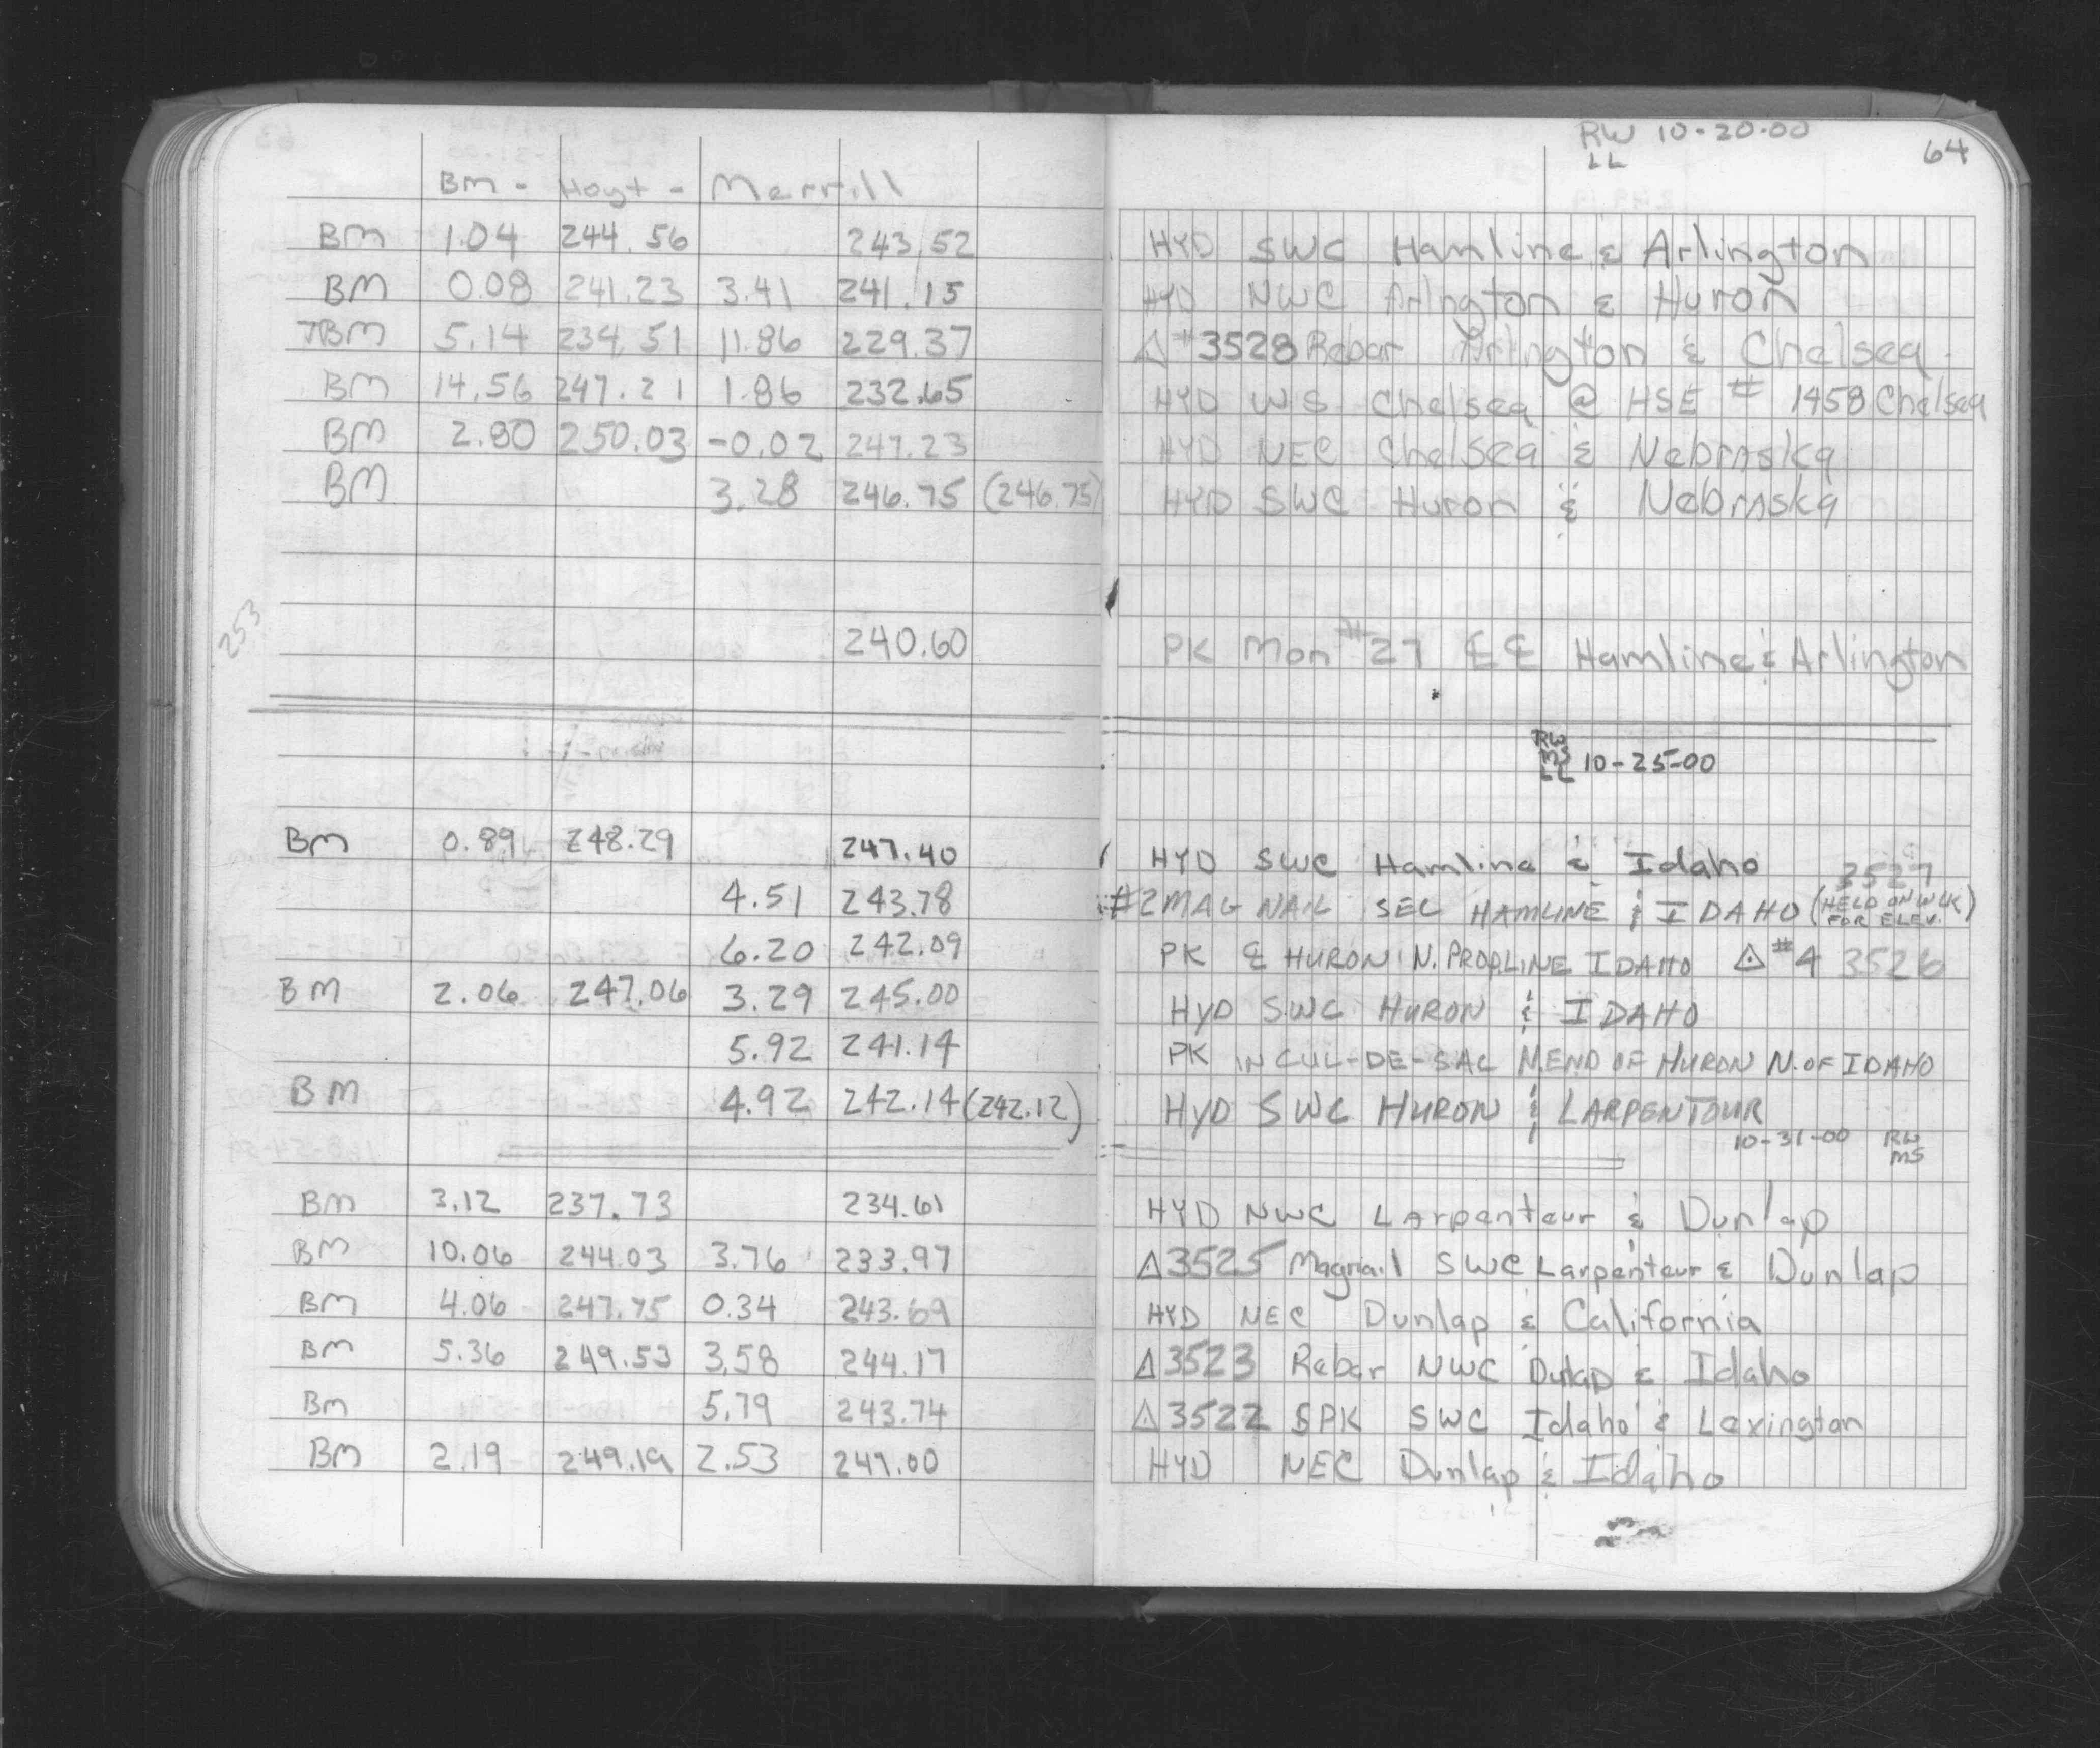 RW 10-20-00
LL
64
BM - Hoyt - Merrill
BM 1.04 244.56 243.52 HYD SWC Hamline & Arlington
BM 0.08 241.23 3.41 241.15 HYD NWC Arlngton & Huron
TBM 5.14 234.51 11.86 229.37 △ #3528 Rebar Arlington & Chelsea
BM 14.56 247.21 1.86 232.65 HYD WS Chelsea @ HSE # 1458 Chelsea
BM 2.80 250.03 -0.02 247.23 HYD NEC Chelsea & Nebrnska
BM 3.28 246.75 (246.75) HYD SWC Huron & Nebrnska
253
240.60 PK Mon #27 ℄℄ Hamline & Arlington
RW
MS
LL 10-25-00
BM 0.89 248.29 247.40 HYD SWC Hamline & Idaho 3527
4.51 243.78 #2 MAG NAIL SEC HAMLINE & IDAHO (HELD ON WLK FOR ELEV.)
6.20 242.09 PK ℄ HURON N. PROPLINE IDAHO △ #4 3526
BM 2.06 247.06 3.29 245.00 HYD SWC HURON & IDAHO
5.92 241.14 PK IN CUL-DE-SAC N. END OF HURON N. OF IDAHO
BM 4.92 242.14 (242.12) HYD SWC HURON & LARPENTOUR
10-31-00 RW
MS
BM 3.12 237.73 234.61 HYD NWC Larpenteur & Dunlap
BM 10.06 244.03 3.76 233.97 △ 3525 Magnail SWC Larpenteur & Dunlap
BM 4.06 247.75 0.34 243.69 HYD NEC Dunlap & California
BM 5.36 249.53 3.58 244.17 △ 3523 Rebar NWC Dulap & Idaho
BM 5.79 243.74 △ 3522 SPK SWC Idaho & Lexington
BM 2.19 249.19 2.53 247.00 HYD NEC Dunlap & Idaho